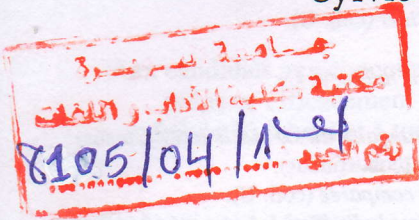 جـامعة
مكتبة كلية الآداب و اللغات
رقم الجرد 8105/04/1